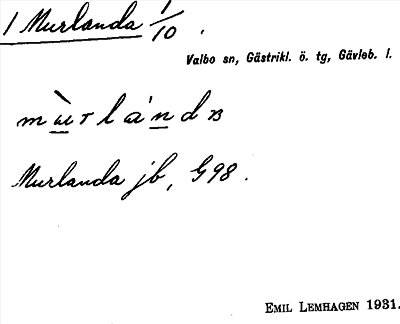 1 Murlanda 1/10.
Valbo sn, Gästrikl. ö. tg, Gävleb. l.
Murlanda jb, G98.
EMIL LEMHAGEN 1931.